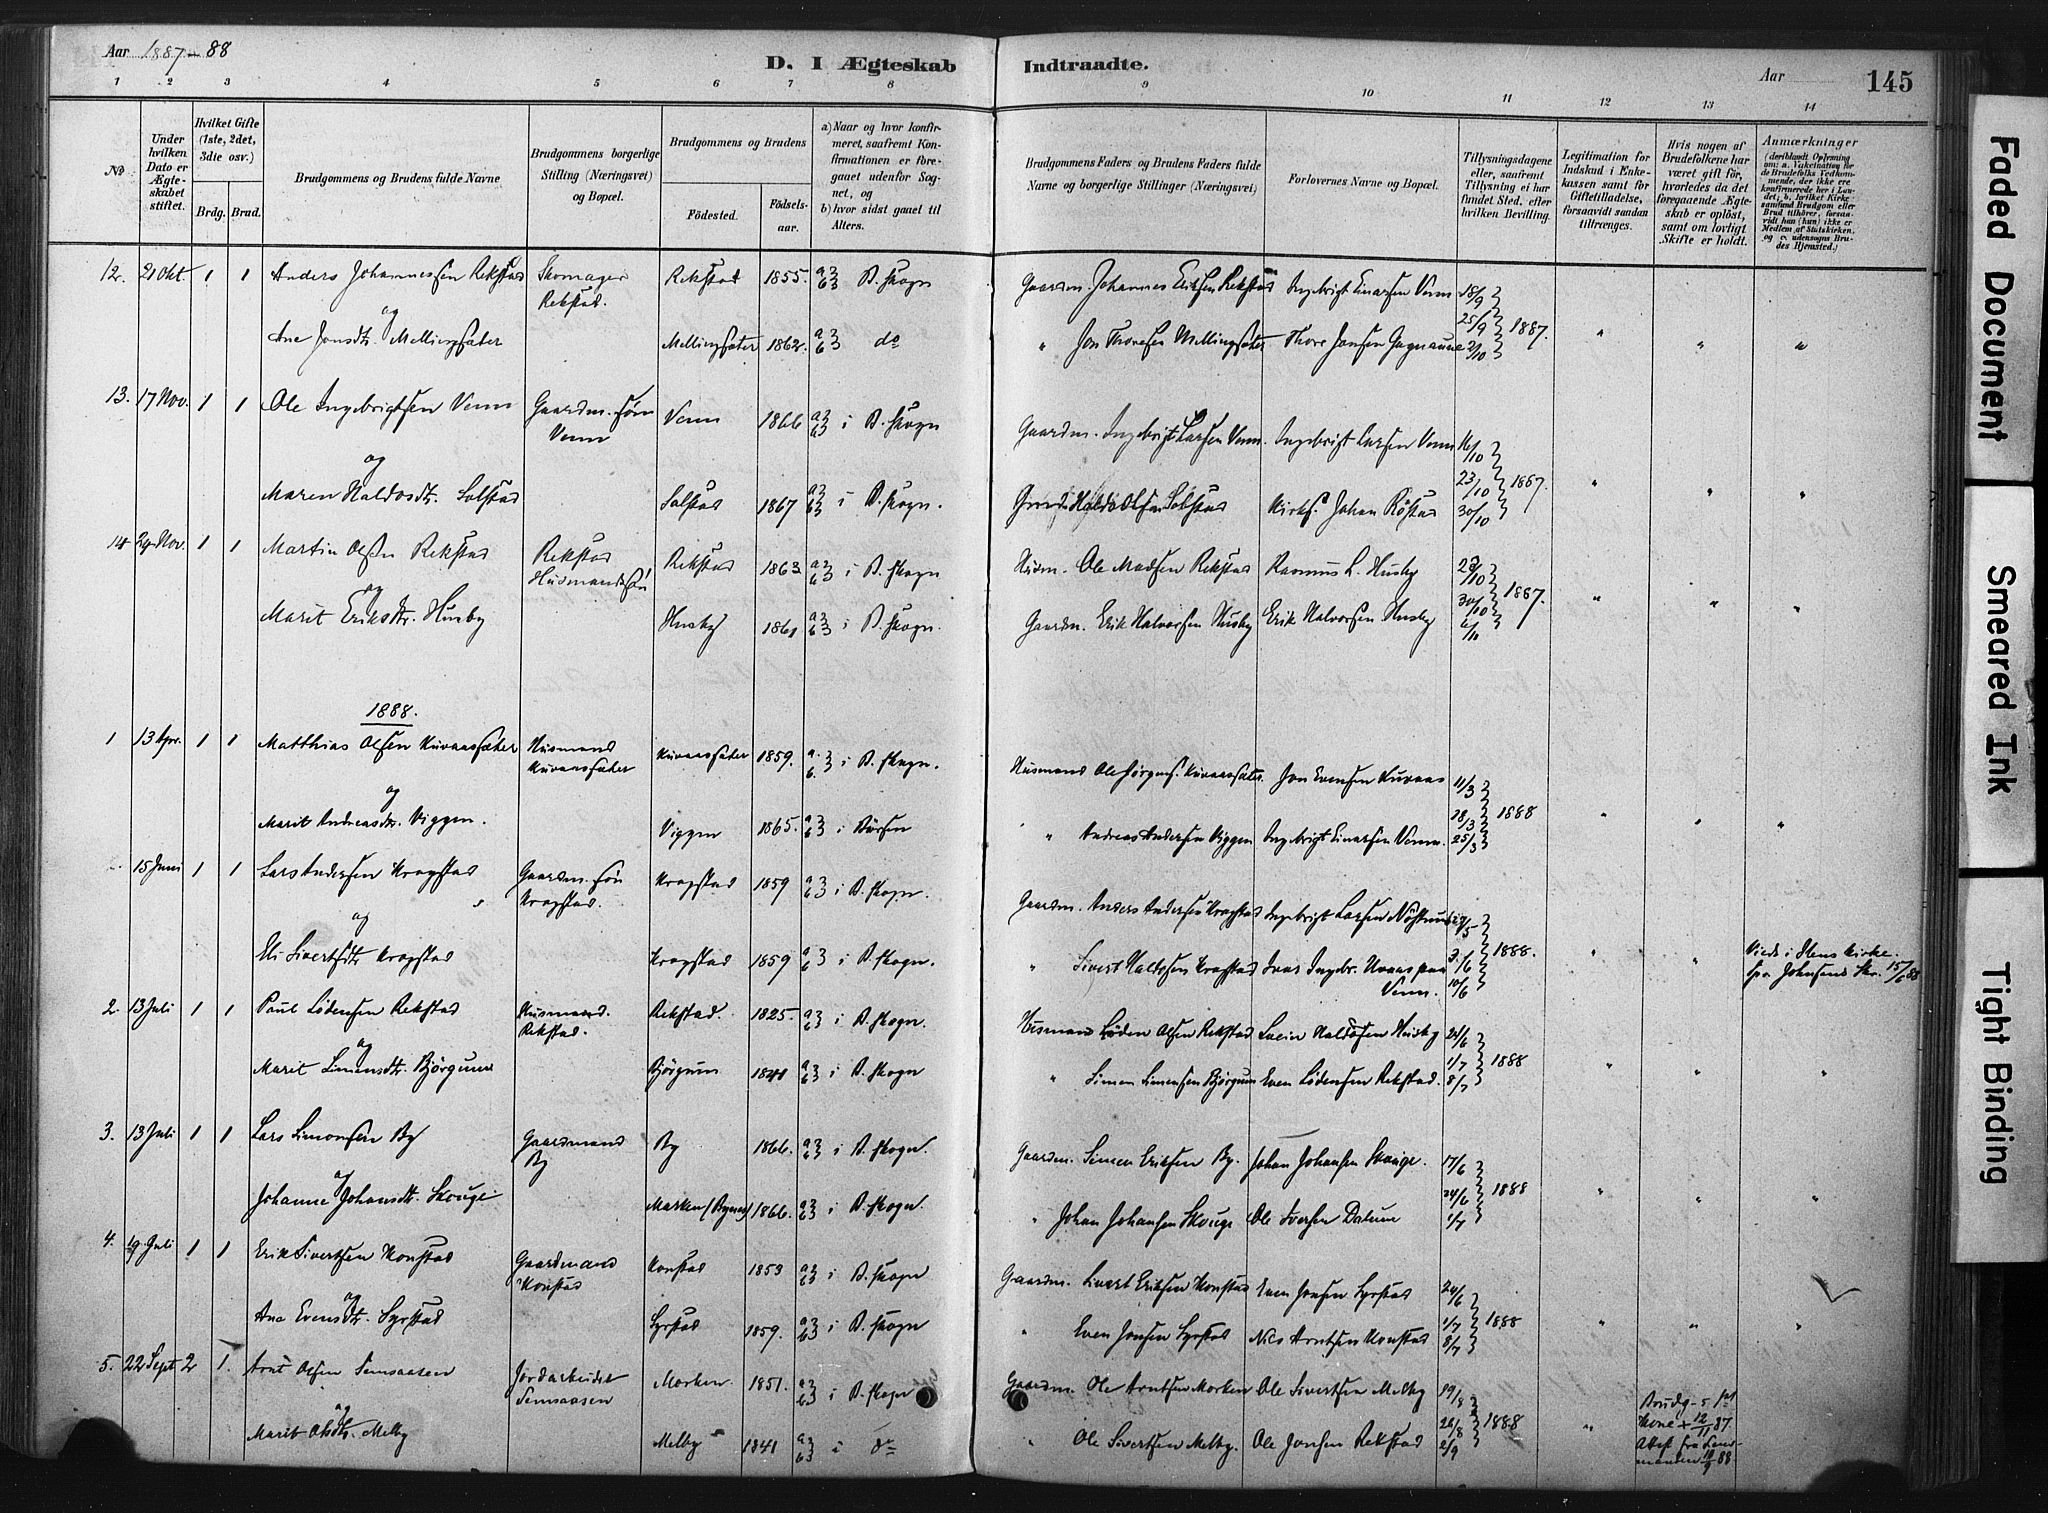 Aar 1887-88
D. I Ægteskab Indtraadte.
Aar
145
1 2 3 4 5 6 7 8 9 10 11 12 13 14
No
Under hvilken Dato er Ægteskabet stiftet.
Hvilket Gifte (1ste, 2det, 3die osv.)
Brdg. Brud.
Brudgommens og Brudens fulde Navne
Brudgommens borgerlige Stilling (Næringsvei) og Bopæl.
Brudgommens og Brudens
Fødested.
Fødsels-aar.
a) Naar og hvor konfirmeret, saafremt Konfirmationen er foregaaet udenfor Sognet, og
b) hvor sidst gaaet til Alters.
Brudgommens Faders og Brudens Faders fulde Navne og borgerlige Stillinger (Næringsvei)
Forlovernes Navne og Bopæl.
Tillysningsdagene eller, saafremt Tillysning ei har fundet Sted, efter hvilken Bevilling.
Legitimation for Indskud i Enkekassen samt for Giftetilladelse, forsaavidt saadan tiltrænges.
Hvis nogen af Brudefolkene har været gift før, hvorledes da det foregaaende Ægteskab er opløst, samt om lovligt Skifte er holdt.
Anmærkninger
12. 21 Okt. 1 1 Anders Johannessen Rekstad Skomager Rekstad. Rekstad 1855. B. skogn Gaardm. Johannes Eriksen Rekstad Ingebrigt Einarsen Venn 18/9
og 25/9 1887.
Ane Jonsdtr. Mellingsæter Mellingsæter 1862. do " Jon Thoresen Mellingsæter Thore Jonsen Gagnaune 2/10 " " "
13. 17 Nov. 1 1 Ole Ingebrigtsen Venn Gaardm. søn Venn Venn 1866 i B. skogn Gaardm. Ingebrigt Larsen Venn. Ingebrigt Larsen Venn 16/10
og 23/10 1887.
Maren Haldosdtr. Solstad Solstad 1867 i B. skogn. Haldo Olsen Solstad Kirks. Johan Röstad 30/10 " " "
14 29 Nov. 1 1 Martin Olsen Rekstad Rekstad Husmandssön Rekstad 1863 i B. skogn Husm. Ole Madsen Rekstad Rasmus L. Husby 23/10
og 30/10 1887.
Marit Eriksdtr. Husby Husby 1861 i B. skogn. Gaardm. Erik Halvorsen Husby Erik Halvorsen Husby 6/11 " " "
1888.
1 13 Apr. 1 1 Matthias Olsen Kuvaassæter Husmand Kuvaassæter Kuvaassæter 1859. i B. skogn. Husmand Ole Jörgens. Kuvaassæter. Jon Evensen Kuvaas 11/3
og 18/3 1888
Marit Andreasdtr. Viggen. Viggen 1865. i Börsen " Andreas Andersen Viggen Ingebrigt Einarsen Venn. 25/3 " " "
15 Juni 1 1 Lars Andersen Krogstad Gaardm. søn Krogstad. Krogstad 1859 i B. skogn. Gaardm. Anders Andersen Krogstad Ingebrigt Larsen
og 3/6 1888.
Eli Sivertsdtr Krogstad Krogstad 1859 i B. skogn. " Sivert Haldosen Krogstad Ivar Ingebr. Venn. 10/6 " " Viede i Stens Kirke.
2. 13 Juli 1 1 Paul Lödensen Rekstad Husmand. Rekstad. Rekstad. 1825. i B. skogn. Husmand Löden Olsen Rekstad Svein Haldosen Husby 24/6
og 1/7 1888
Marit Simensdtr. Björgum Björgum 1841 i B. skogn " Simen Simensen Björgum Even Lödensen Rekstad. 8/7 " " "
3. 13 Juli 1 1 Lars Simonsen By Gaardmand By By 1866. i B. skogn. Gaardm. Simen Eriksen By. Johan Johansen Skouge. 17/6
og 24/6 1888
Johanne Johansdtr. Skouge Marken (Bynes) 1866. i B. skogn. " Johan Johansen Skouge Ole Iversen Dalum 1/7 " " "
4. 19 Juli 1 1 Erik Sivertsen Konstad Gaardmand Konstad Konstad 1853 i B. skogn Gaardm. Sivert Eriksen Konstad Even Jonsen Syrstad 24/6
og 1/7 1888
Ane Evensdtr. Syrstad Syrstad 1859. i B. skogn " Even Jonsen Syrstad Nils Arntsen Konstad 8/7 " " "
5. 22 Sept 2 1. Arnt Olsen Semsaasen Jordarbeider Semsaasen Morken. 1851. i B. skogn Gaardm. Ole Arntsen Morken Ole Sivertsen Melby 19/8
og 26/8 1888
Marit Olsdtr. Melby Melby 1841 i do " Ole Sivertsen Melby. Ole Jonsen Rekstad 2/9 " Brudg-s 1st Kone + 12/11 87 Attest fra Lensmanden 10/9 88
Faded Document
Smeared Ink
Tight Binding